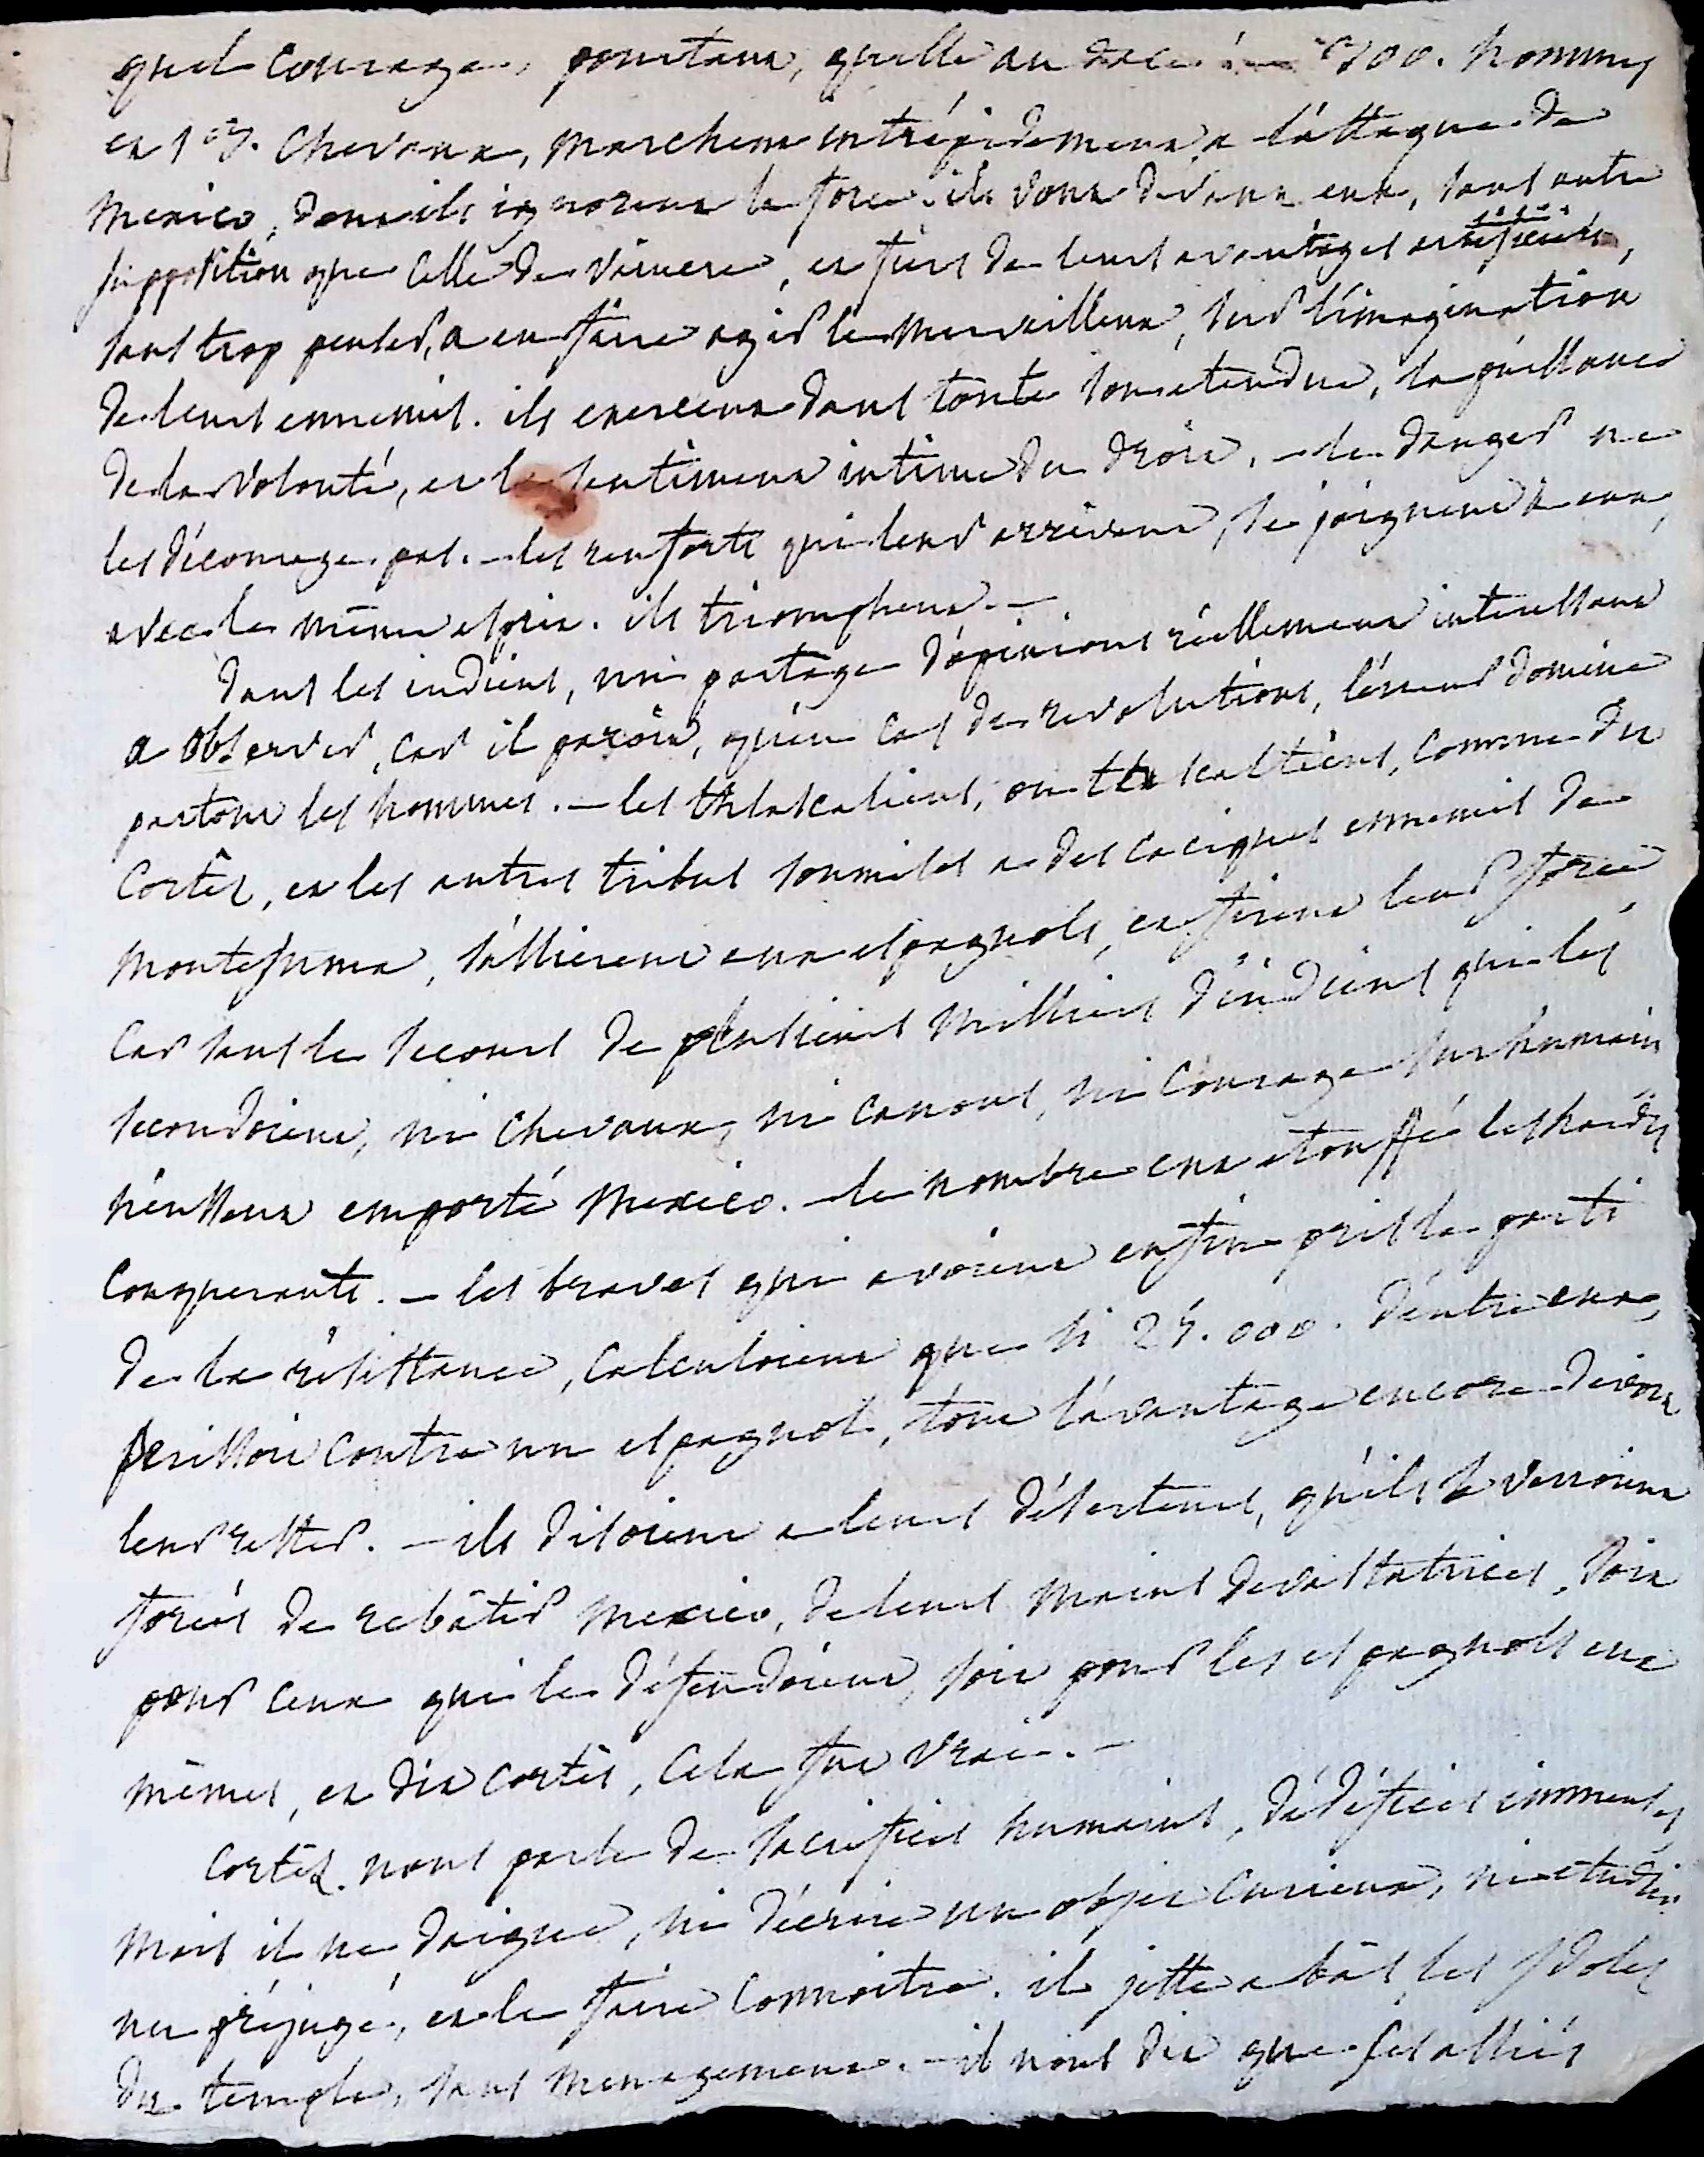 quel courage, pourtant, quelle audace! 500. hommes
et 15. chevaux, marchent intrépidement a l'attaque de
mexico, dont ils ignorent la force. ils vont devant eux, sans autre
supposition que celle de vaincre, et fiers de leurs avantages
sans trop penser, a en faire agir le merveilleux, sur l'imagination
de leurs ennemis. ils exercent dans toute son etendue, la puissance
de la volonté, et le sentiment intime du droit. – le danger ne
les décourage pas. – les renforts qui leur arrivent, se joignent a eux,
avec le même esprit. ils triomphent. –
dans les indiens, un partage d'opinions réellement interessant
a observer, car il paroit, qu'en cas de revolutions, l'erreur domine
partout les hommes. – les thlascaliens, ou tlascaltiens, comme dit
Cortès, et les autres tribus soumises a des caciques ennemis de
montesuma, s'allierent aux espagnols, et firent leur force
car sans le secours de plusieurs milliers d'indiens qui les
secondoient, ni chevaux, ni canons, ni courage surhumain
n'eussent emporté mexico. – le nombre eut etouffé les hardis
conquerants. – les braves qui avoient enfin pris le parti
de la résistance, calculoient que si 25.000. d'entre eux,
perissoit contre un espagnol, tout l'avantage encore devoit
leur rester. – ils disoient a leurs déserteurs, qu'ils se verroient
forcés de rebâtir mexico, de leurs mains devastatrices, soit
pour ceux qui le défendoient, soit pour les espagnols eux
mêmes, et dit cortès, cela fut vrai. –
Cortès nous parle de sacrifices humains, d'édifices immenses
mais il ne daigne, ni décrire un objet curieux, ni etudier
un préjugé, et le faire connoitre. il jette a bas les ydoles
du temple, sans menagement. – il nous dit que ses alliés